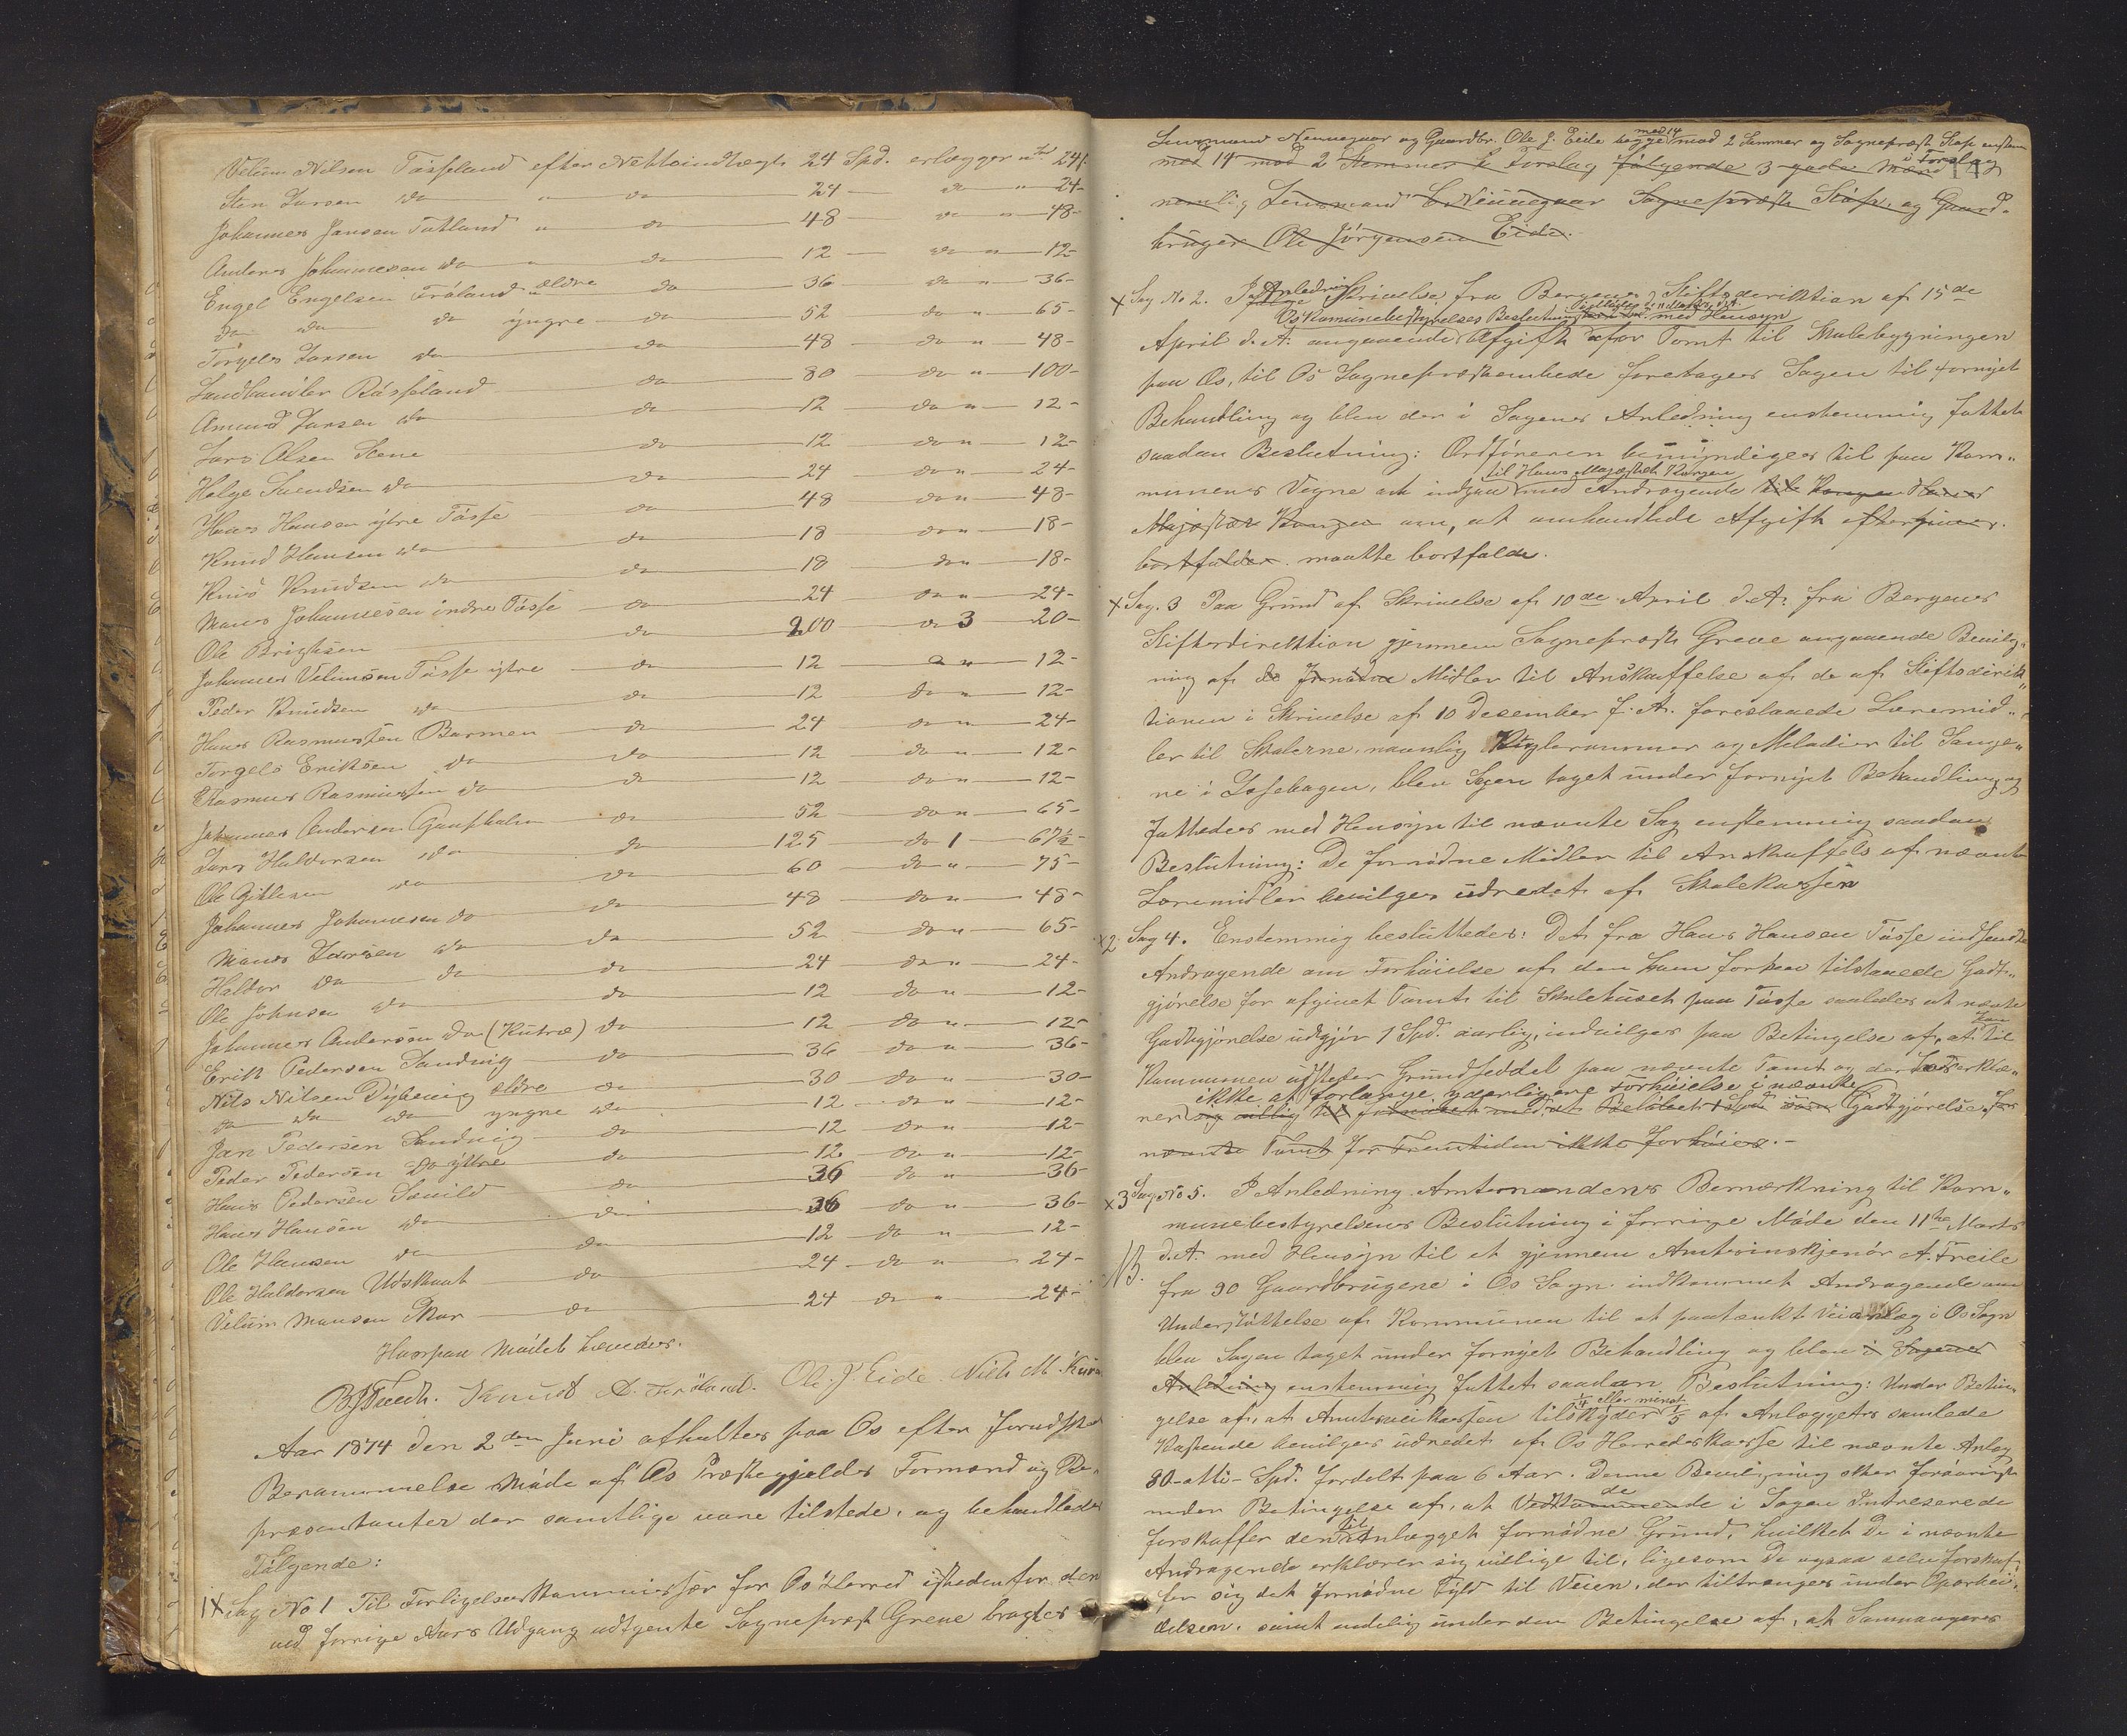 Velum Nilsen Tøsseland efter Nettoindtægt 24 Spd. erlægger " 24
Sten Larsen do " do 24 do " 24-
Johannes Jansen Tøtland " do 48 do " 48-
Anders Johannesen do " do 12 do " 12-
Engel Engelsen Frøland ældre do 36 do " 36-
do do do yngre do 52 do " 65-
Torgels Larsen do do 48 do " 48-
Landhandler Røsseland do 80 do " 100-
Amund Larsen do do 12 do " 12-
Lars Olsen Stene do 12 do " 12-
Helge Svendsen do do 24 do " 24-
Hans Hansen ytre Tøsse do 48 do " 48-
Knud Hansen do do 18 do " 18-
Knud Knudsen do do 18 do " 18-
Mons Johannesen indre Tøsse do 24 do " 24-
Ole Brigtsen do 200 do 3 20-
Johannes Velumsen Tøsse ytre do 12 do " 12-
Peder Knudsen do do 12 do " 12-
Hans Rasmussen Barmen do 24 do " 24-
Torgels Eriksen do do 12 do " 12-
Rasmus Rasmussen do do 12 do " 12-
Johannes Andersen Gaupholm do 52 do " 65-
Lars Haldorsen do do 125 do 1 67½-
Ole Gitlesen do do 60 do " 75-
Johannes Johannesen do do 48 do " 48-
Mons Larsen do do 52 do " 65-
Haldor do do do 24 do " 24-
Ole Johnsen do do 12 do " 12-
Johannes Andersen do (Kutræ) do 12 do " 12-
Erik Pedersen Sandvig do 36 do " 36-
Nils Nilsen Dybevig ældre do 30 do " 30-
do do do yngre do 12 do " 12-
Jan Pedersen Sandvig do 12 do " 12-
Peder Pedersen do yttre do 12 do " 12-
Hans Pedersen Sævild do 36 do " 36-
Hans Hansen do do 36 do " 36-
Ole Hansen do do 12 do " 12-
Ole Haldorsen Udskaat do 24 do " 24-
Velum Monsen Skar do 24 do " 24-
Hvorpaa Mødet hævedes.
Knud A. Frøland. Ole J. Eide. Niels M.
Aar 1874 den 2den Juni afholtes paa Os efter forud
Berammelse Møde af Os Præstegjelds Formænd og Re-
præsentanter der samtlige vare tilstede, og behandledes
Følgende:
1 x Sag No 1 Til Forligelseskommissær for Os Herred istedenfor den
ved forrige Aars Udgang udtgente Sognepræst Greve bragtes
Lensmand Nennegaar og Gaardbr. Ole J. Eide begge med 14 mod 2 Stemmer og Sognepræst Støp enstem
med 14 mod 2 Stemmer i Forslag følgende 3 gode Mænd i Forslag
nemlig Lensmand C. Nennegaar Sognepræst Støp, og Gaard-
bruger Ole Jørgensen Eide.
x Sag No 2. I Anledning Skrivelse fra Bergens Stiftsdirektion af 15de
Os Komunebestyrelses Beslutning med Hensyn
April d. A. angaaende Afgift afor Tomt til Skolebygningen
paa Os, til Os Sognepræstembede foretages Sagen til fornyet
Behandling og blev der i Sagens Anledning enstemmig fattet
saadan Beslutning: Ordføreren bemyndiges til paa Kom-
til Hans Majestæt Kongen
munens Vegne at indgaa med Andragende til Kongen Hans
Majestæt Kongen om, at omhandlede Afgift eftergives.
bortfalder. maatte bortfalde.
x Sag. 3 Paa Grund af Skrivelse af 10de April d.A. fra Bergens
Stiftsdirektion gjennem Sognepræst Greve angaaende Bevilg-
ning af de fornødne Midler til Anskaffelse af de af Stiftsdirek-
tionen i Skrivelse af 10 Desember f. A. foreslaaede Læremid-
ler til Skolerne, navnlig Kuglerammer og Melodier til Sange-
ne i Læsebogen, blev Sagen taget under fornyet Behandling, og
fattedes med Hensyn til nævnte Sag enstemmig saadan
Beslutning: De fornødne Midler til Anskaffels af nævnte
Læremidler bevilges udredet af Skolekassen
x2. Sag 4. Enstemmig besluttedes: Det fra Hans Hansen Tøsse indsendte
Andragende om Forhøielse af den ham forhen tilstaaede Godt-
gjørelse for afgivet Tomt til Skolehuset paa Tøsse saaledes at nævnte
Godtgjørelse udgjør 1 Spd. aarlig, indvilges paa Betingelse af, at han til
Kommunen udsteder Grundseddel paa nævnte Tomt og der i erklæ-
ikke at forlange yderligere Forhøielse i nævnte
rer sig villig til fornøiet med at Beløbet 1 Spd som Godtgjørelse. for
nævnte Tomt for Fremtiden ikke forhøies. -
x3 Sag No 5. I Anledning Amtmandens Bemærkning til Kom-
munebestyrelsens Beslutning i forrige Møde den 11te Marts
NB. d.A. med Hensyn til et gjennem Amtsinskjenør A. Freile
fra 30 Gaardbrugene i Os Sogn indkommet Andragende om
Understøttelse af Kommunen til et paatænkt Veianlæg i Os Sogn
blev Sagen taget under fornyet Behandling og blev i Sagens
Anledning enstemmig fattet saadan Beslutning: Under Betin-
gelse af, at Amtsveikassen tilskyder ¼ eller minst 1/5 af Anlæggets samlede
Kostende bevilges udredet af Os Herredskasse til nævnte Anlæg
80-otti- Spd. fordelt paa 6 Aar. Denne Bevilgning sker forøvrigt
under Betingelse af, at Vedkommende de i Sagen Intreserede
forskaffer den til Anlægget fornødne Grund, hvilket De i nævnte
Andragende erklærer sig villige til, ligesom De ogsaa selv forskaf-
fer sig det fornødne Fyld til Veien, der tiltrænges under Oparbei-
delsen, samt endelig under den Betingelse af, at Samnangers